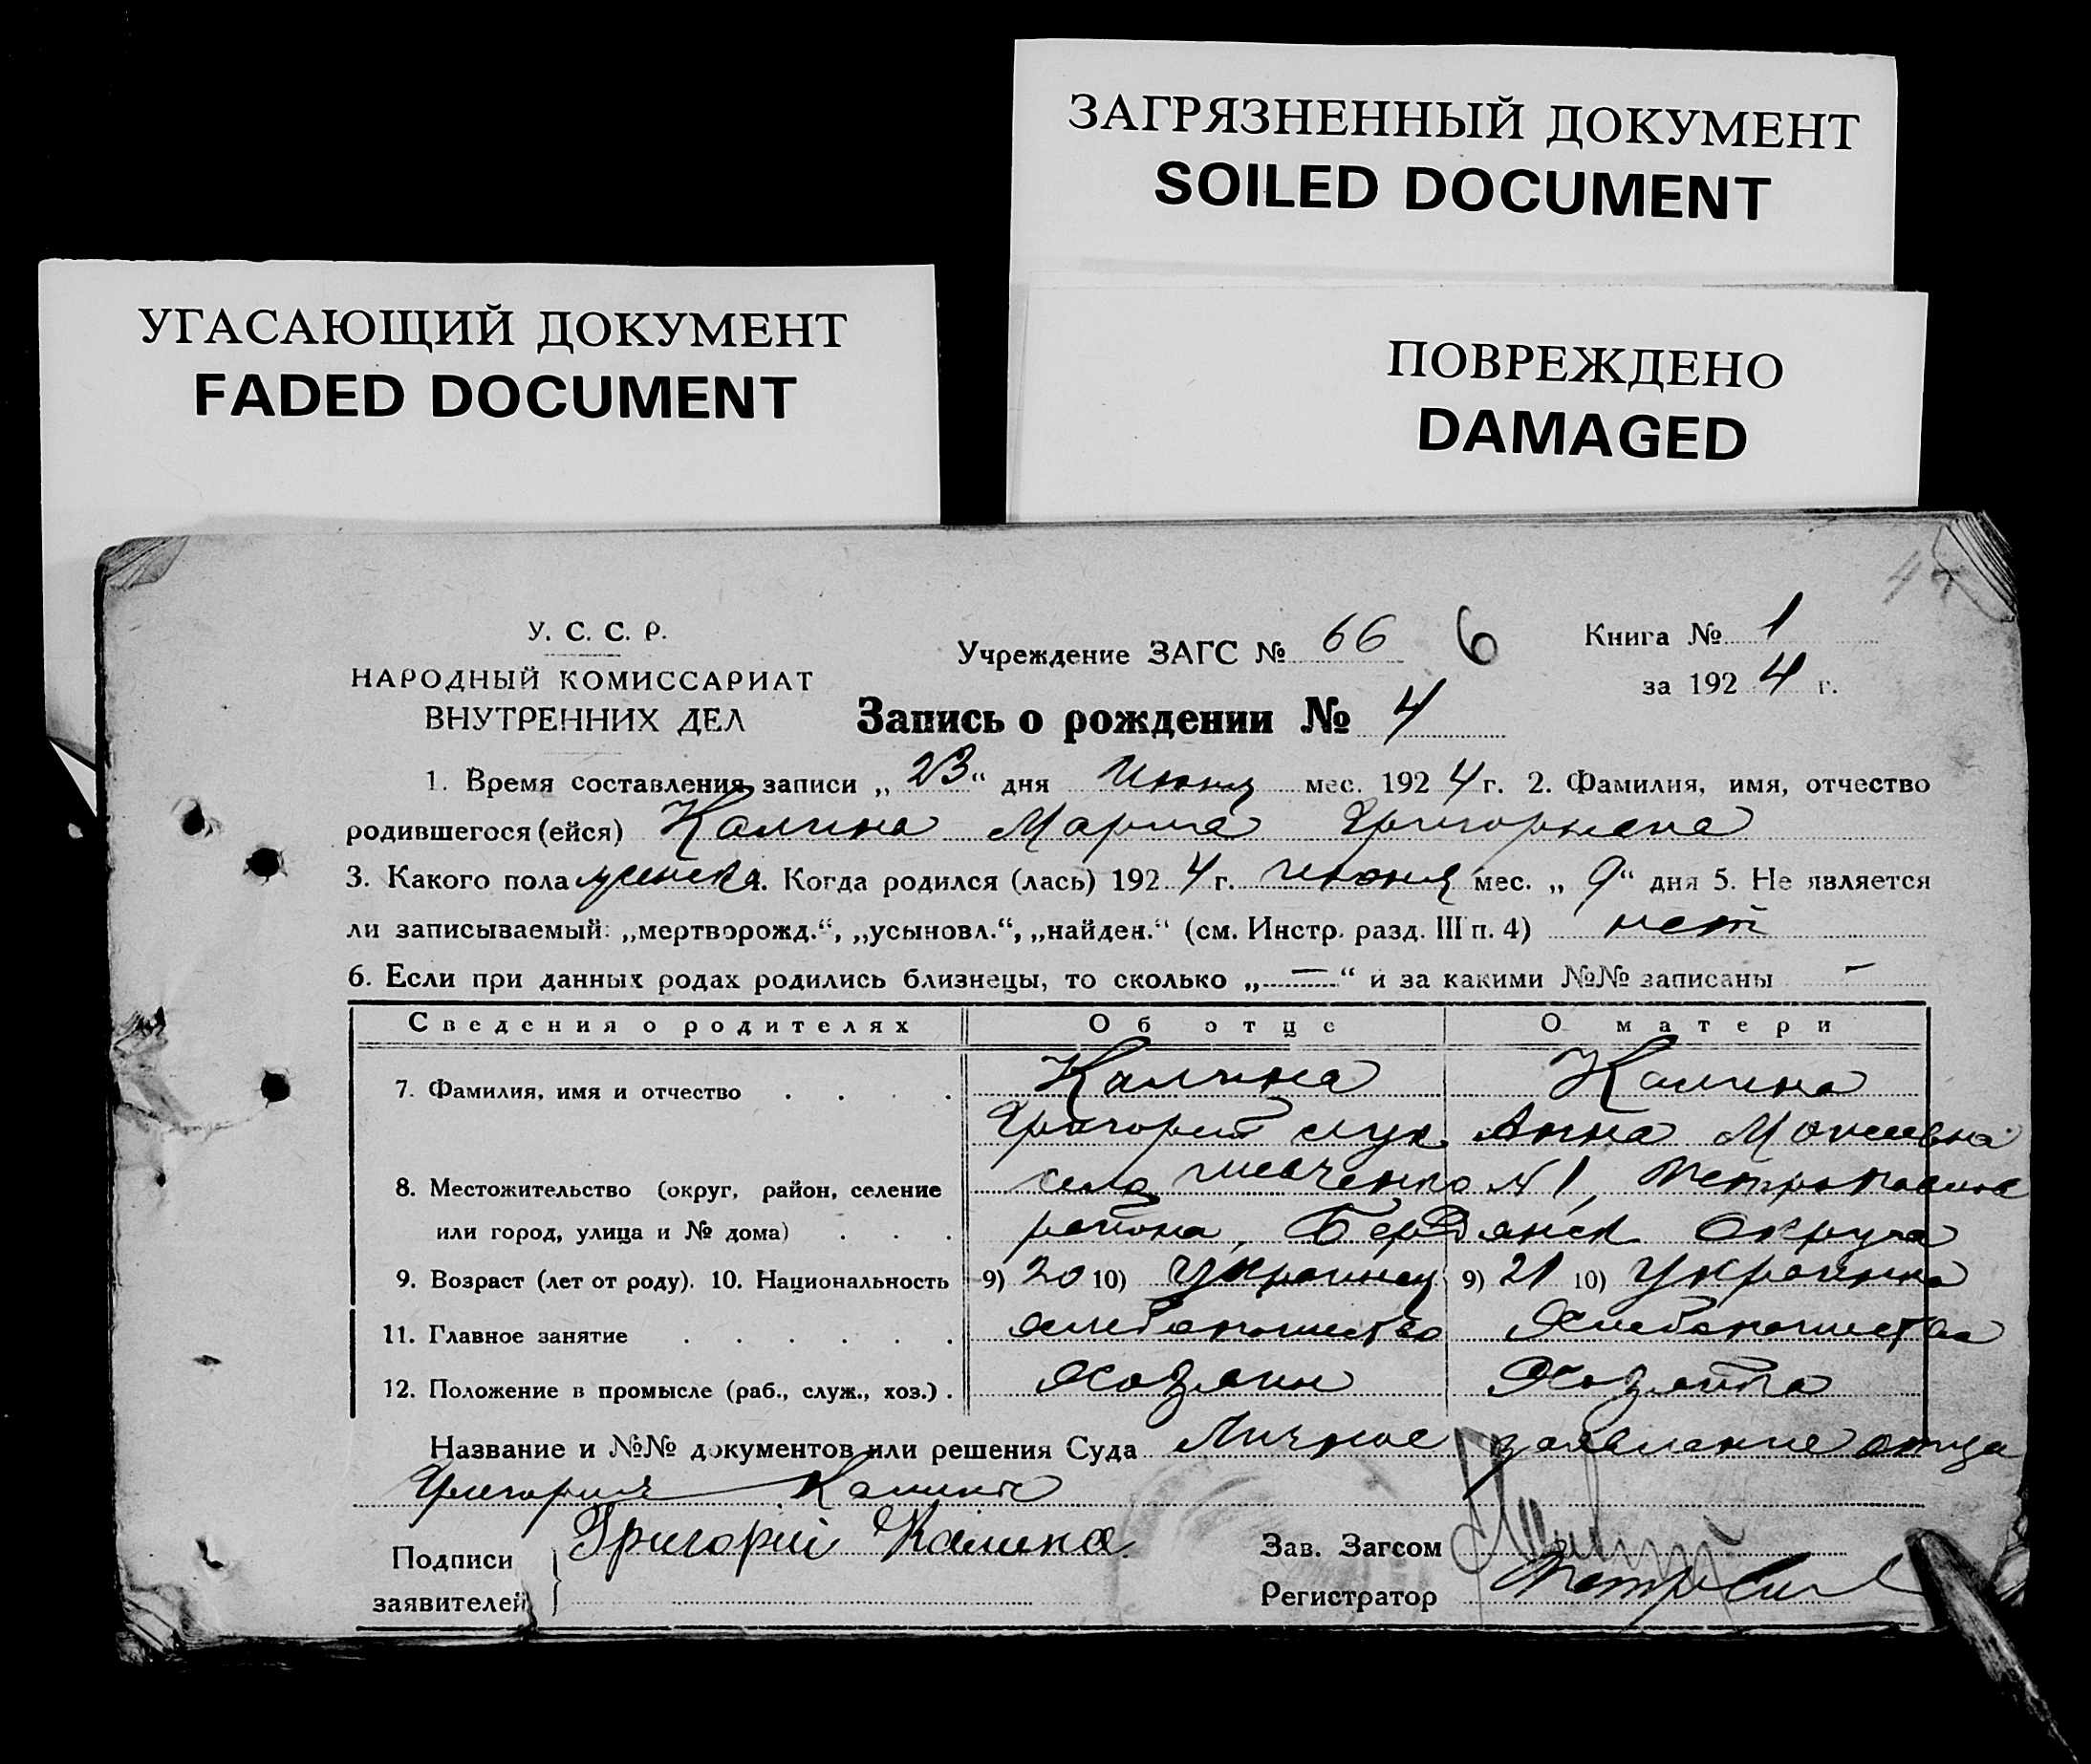 ЗАГРЯЗНЕННЫЙ ДОКУМЕНТ
SOILED DOCUMENT
УГАСАЮЩИЙ ДОКУМЕНТ
FADED DOCUMENT
ПОВРЕЖДЕНО
DAMAGED
У. С. С. Р.
НАРОДНЫЙ КОМИССАРИАТ
ВНУТРЕННИХ ДЕЛ
Учреждение ЗАГС № 66 6
Книга № 1
за 1924 г.
Запись о рождении № 4
1. Время составления записи „23“ дня Июня мес. 1924 г. 2. Фамилия, имя, отчество
родившегося (ейся) Калина Мария Григорьевна
3. Какого пола женска 4. Когда родился (лась) 1924 г. июня мес. „9“ дня 5. Не является
ли записываемый: „мертворожд.“, „усыновл.“, „найден.“ (см. Инстр. разд. III п. 4) нет
6. Если при данных родах родились близнецы, то сколько „—“ и за какими №№ записаны —
Сведения о родителях Об отце О матери
7. Фамилия, имя и отчество Калина Калина
Григорий Анна
8. Местожительство (округ, район, селение село №1,
или город, улица и № дома) района, Бердянск округа
9. Возраст (лет от роду). 10. Национальность 9) 20 10) Украинец 9) 21 10) Украинка
11. Главное занятие хлебопашество Хлебопашество
12. Положение в промысле (раб., служ., хоз.) Хозяин Хозяйка
Название и №№ документов или решения Суда Личное заявление отца
Григория Калины
Подписи Григорій Калина
заявителей
Зав. Загсом
Регистратор